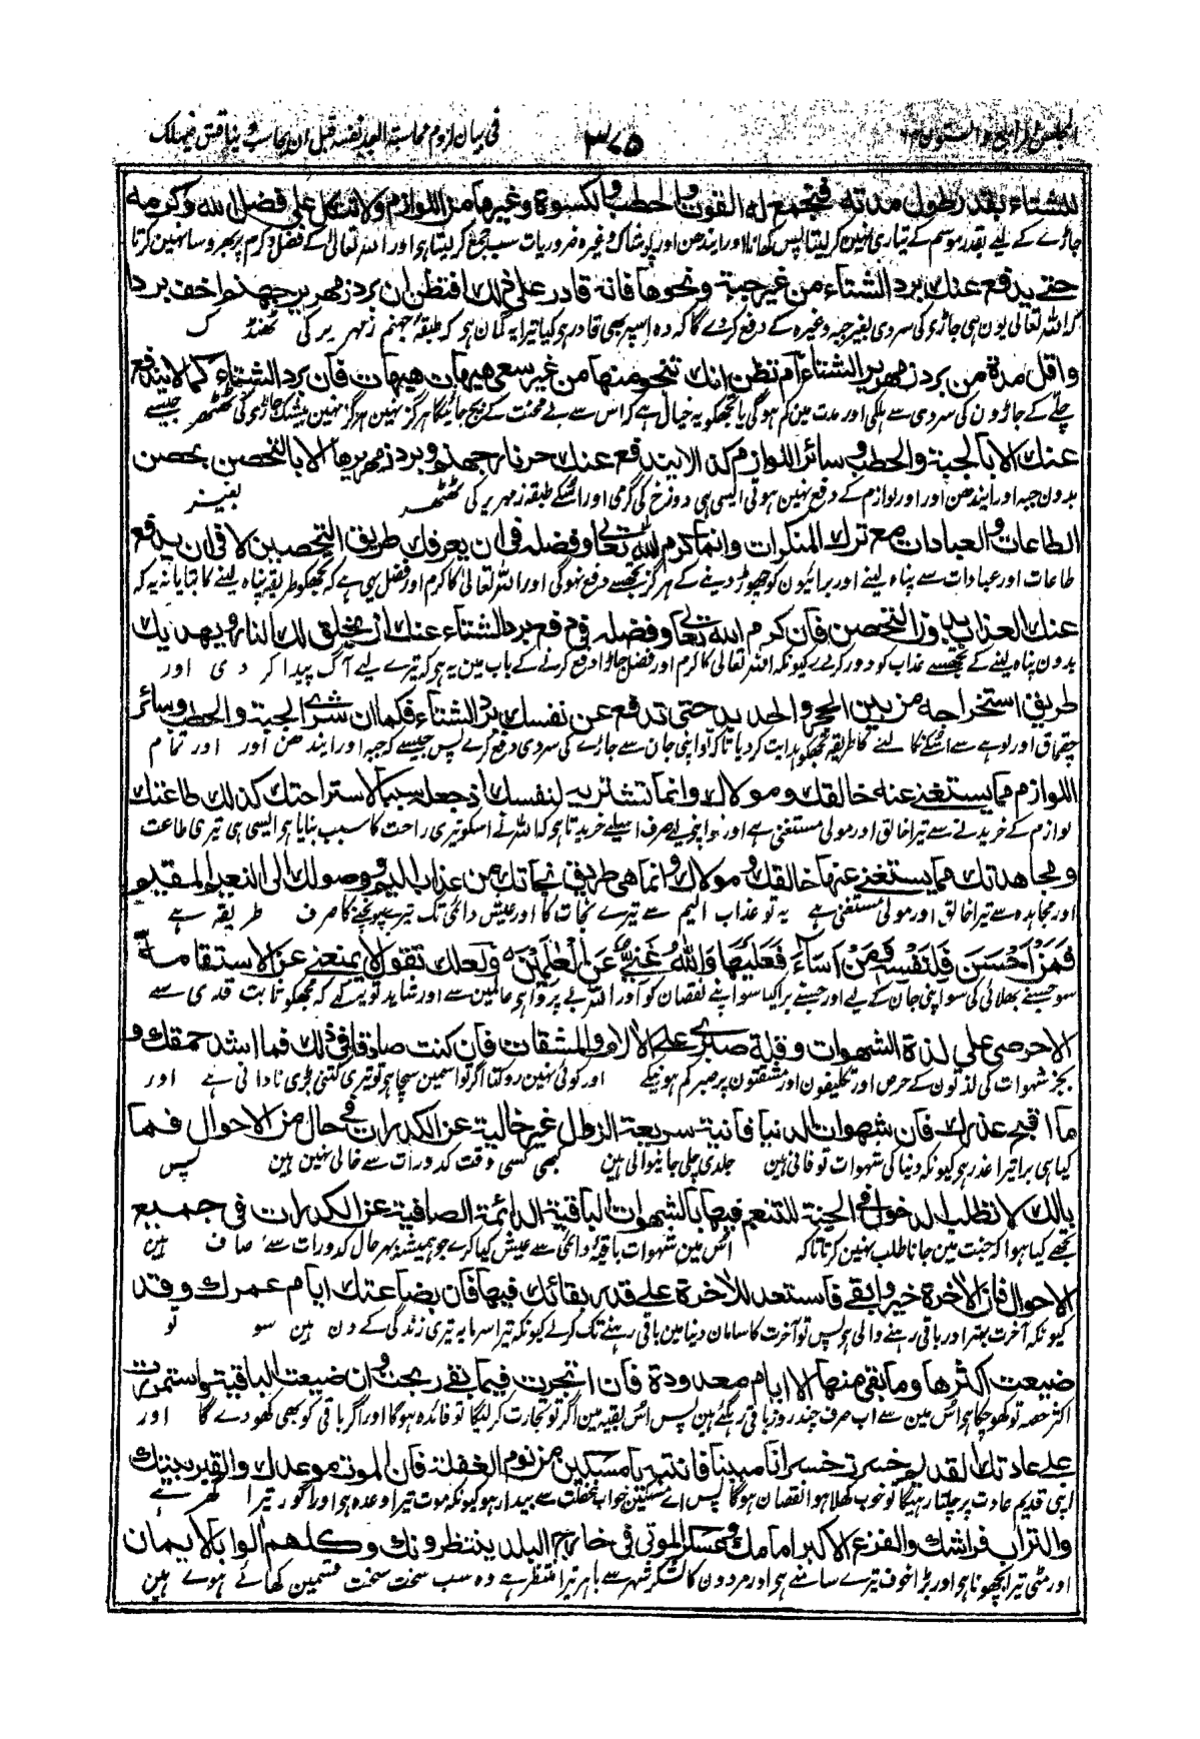 المجلس الرابع والستون ٣٧٥ فی بیان لزوم محاسبة العبد نفسه قبل ان یحاسب و یناقش فیهلك
للشتاء بقدر طول مدته فتجمع له القوت والحطب والكسوة وغيرها من اللوازم ولا تتكل على فضل الله وكرمه
جاڑے کے لیے بقدر موسم کے تیاری نہین کر لیتا پس کھانا اور ایندھن اور پوشاک وغیرہ ضروریات سب جمع کر لیتا ہو اور اللہ تعالی کے فضل و کرم پر بھروسا نہین کرتا
حتى يدفع عنك برد الشتاء من غير جبة ونحوها فانه قادر على ذلك افتظن ان برد زمهرير جهنم اخف بردا
کہ اللہ تعالی یون ہی جاڑی کی سردی بغیر جبہ وغیرہ کے دفع کر دے گا کہ وہ اسپر بھی قادر ہو کیا تیرا یہ گمان ہو کہ طبقہ جہنم زمہریر کی ٹھنڈک
واقل مدة من برد زمهرير الشتاء ام تظن انك تنجو منها من غير سعى هيهات هيهات فان برد الشتاء كما لا يندفع
چلے کے جاڑون کی سردی سے ہلکی اور مدت مین کم ہو گی یا تجھکو یہ خیال ہے کہ اس سے بے محنت کے بچ جائیگا ہرگز نہین ہرگز نہین بیشک جاڑی کی ٹھٹھر جیسے
عنك الا بالجبة والحطب وسائر اللوازم كذا لا يندفع عنك حر نار جهنم وبرد زمهريرها الا بالتحصن بحصن
بدون جبہ اور ایندھن اور اور لوازم کے دفع نہین ہوتی ایسی ہی دوزخ کی گرمی اور اسکے طبقہ زمہریر کی ٹھٹھر بغیر
الطاعات والعبادات مع ترك المنكرات وانما كرم الله تعالى وفضله فى ان يعرفك طريق التحصين لا فى ان يدفع
طاعات اور عبادات سے پناہ لینے اور برائیون کو چھوڑ دینے کے ہرگز تجھسے دفع نہوگی اور اللہ تعالی کا کرم اور فضل یہی ہے کہ تجھکو طریقہ پناہ لینے کا بتایا نہ یہ کہ
عنك العذاب بدون التحصن فان كرم الله تعالى وفضله فى دفع برد الشتاء عنك ان يخلق لك النار ويهديك
بدون پناہ لینے کے تجھسے عذاب کو دور کرے کیونکہ اللہ تعالی کا کرم اور فضل جاڑا دفع کرنے کے باب مین یہ ہو کہ تیرے لیے آگ پیدا کر دی اور
طريق استخراجه من بين الحجر والحديد حتى تدفع عن نفسك برد الشتاء فكما ان شرى الجبة والحطب وسائر
چقماق اور لوہے سے اسکے نکالنے کا طریقہ تجھکو ہدایت کر دیا تاکہ تو اپنی جان سے جاڑے کی سردی دفع کرے پس جیسے کہ جبہ اور ایندھن اور اور تمام
اللوازم مما يستغنى عنه خالقك ومولاك وانما تشتريه لنفسك اذ جعله سببا لاستراحتك كذلك طاعتك
لوازم کے خریدنے سے تیرا خالق اور مولی مستغنی ہے اور تو اپنے لیے صرف اسلیے خریدتا ہو کہ اللہ نے اسکو تیری راحت کا سبب بنایا ہو ایسی ہی تیری طاعت
ومجاهدتك مما يستغنى عنها خالقك ومولاك وانما هى طريق نجاتك من عذاب اليم ووصولك الى النعيم المقيم
اور مجاہدہ سے تیرا خالق اور مولی مستغنی ہے یہ تو عذاب الیم سے تیرے نجات کا اور عیش دائمی تک تیرے پہونچنے کا صرف طریقہ ہے
فَمَنْ اَحْسَنَ فَلِنَفْسِهٖ وَمَنْ اَسَآءَ فَعَلَيْهَا وَاللّٰهُ غَنِيٌّ عَنِ الْعٰلَمِيْنَ ولعلك تقول لا يمنعنى عن الاستقامة
سو جسنے بھلائی کی سو اپنی جان کے لیے اور جسنے برا کیا سو اپنے نقصان کو اور اللہ بے پروا ہو عالمین سے اور شاید تو یہ کہے کہ مجھکو ثابت قدمی سے
الا حرصى على لذة الشهوات وقلة صبرى على الآلام والمشقات فان كنت صادقا فى ذلك فما اشد حمقك و
بجز شہوات کی لذتون کے حرص اور تکلیفون اور مشقتون پر صبر کم ہونیکے اور کوئی نہین روکتا اگر تو اسمین سچا ہو تو تیری کتنی بڑی نادانی ہے اور
ما اقبح عذرك فان شهوات الدنيا فانية سريعة الزوال غير خالية عن الكدرات فى حال من الاحوال فما
کیا ہی برا تیرا عذر ہو کیونکہ دنیا کی شہوات تو فانی ہین جلدی چلی جانیوالی ہین کبھی کسی وقت کدورات سے خالی نہین ہین پس
بالك لا تطلب الدخول فى الجنة للتنعم فيها بالشهوات الباقية الدائمة الصافية عن الكدرات فى جميع
تجھے کیا ہوا کہ جنت مین جانا طلب نہین کرتا تاکہ اس مین شہوات باقیہ دائمی سے عیش کیا کرے جو ہمیشہ بہر حال کدورات سے صاف ہین
الاحوال فان الآخرة خير وابقى فاستعد للآخرة على قدر بقائك فيها فان بضاعتك ايام عمرك وقد
کیونکہ آخرت بہتر اور باقی رہنے والی ہو پس تو آخرت کا سامان دنیا مین باقی رہنے تک کر لے کیونکہ تیرا سرمایہ تیری زندگی کے دن ہین سو تو
ضيعت اكثرها وما بقى منها الا ايام معدودة فان اتجرت فيما بقى ربحت وان ضيعت الباقية واستمررت
اکثر حصہ تو کھو چکا ہو اس مین سے اب صرف چند روز باقی رہگئے ہین پس اس بقیہ مین اگر تو تجارت کر لیگا تو فائدہ ہوگا اور اگر باقی کو بھی کھو دے گا اور
على عادتك القديم خسرت خسرانا مبينا فانتبه يا مسكين من نوم الغفلة فان الموت موعدك والقبر بيتك
اپنی قدیم عادت پر چلتا رہیگا تو خوب کھلا ہوا نقصان ہوگا پس اے مسکین خواب غفلت سے بیدار ہو کیونکہ موت تیرا وعدہ ہو اور گور تیرا گھر ہے
والتراب فراشك والفزع الاكبر امامك وعسكر الموتى فى خارج البلد ينتظرونك وكلهم آلوا بالايمان
اور مٹی تیرا بچھونا ہو اور بڑا خوف تیرے سامنے ہو اور مردون کا لشکر شہر سے باہر تیرا منتظر ہے وہ سب سخت سخت قسمین کھائے ہوے ہین